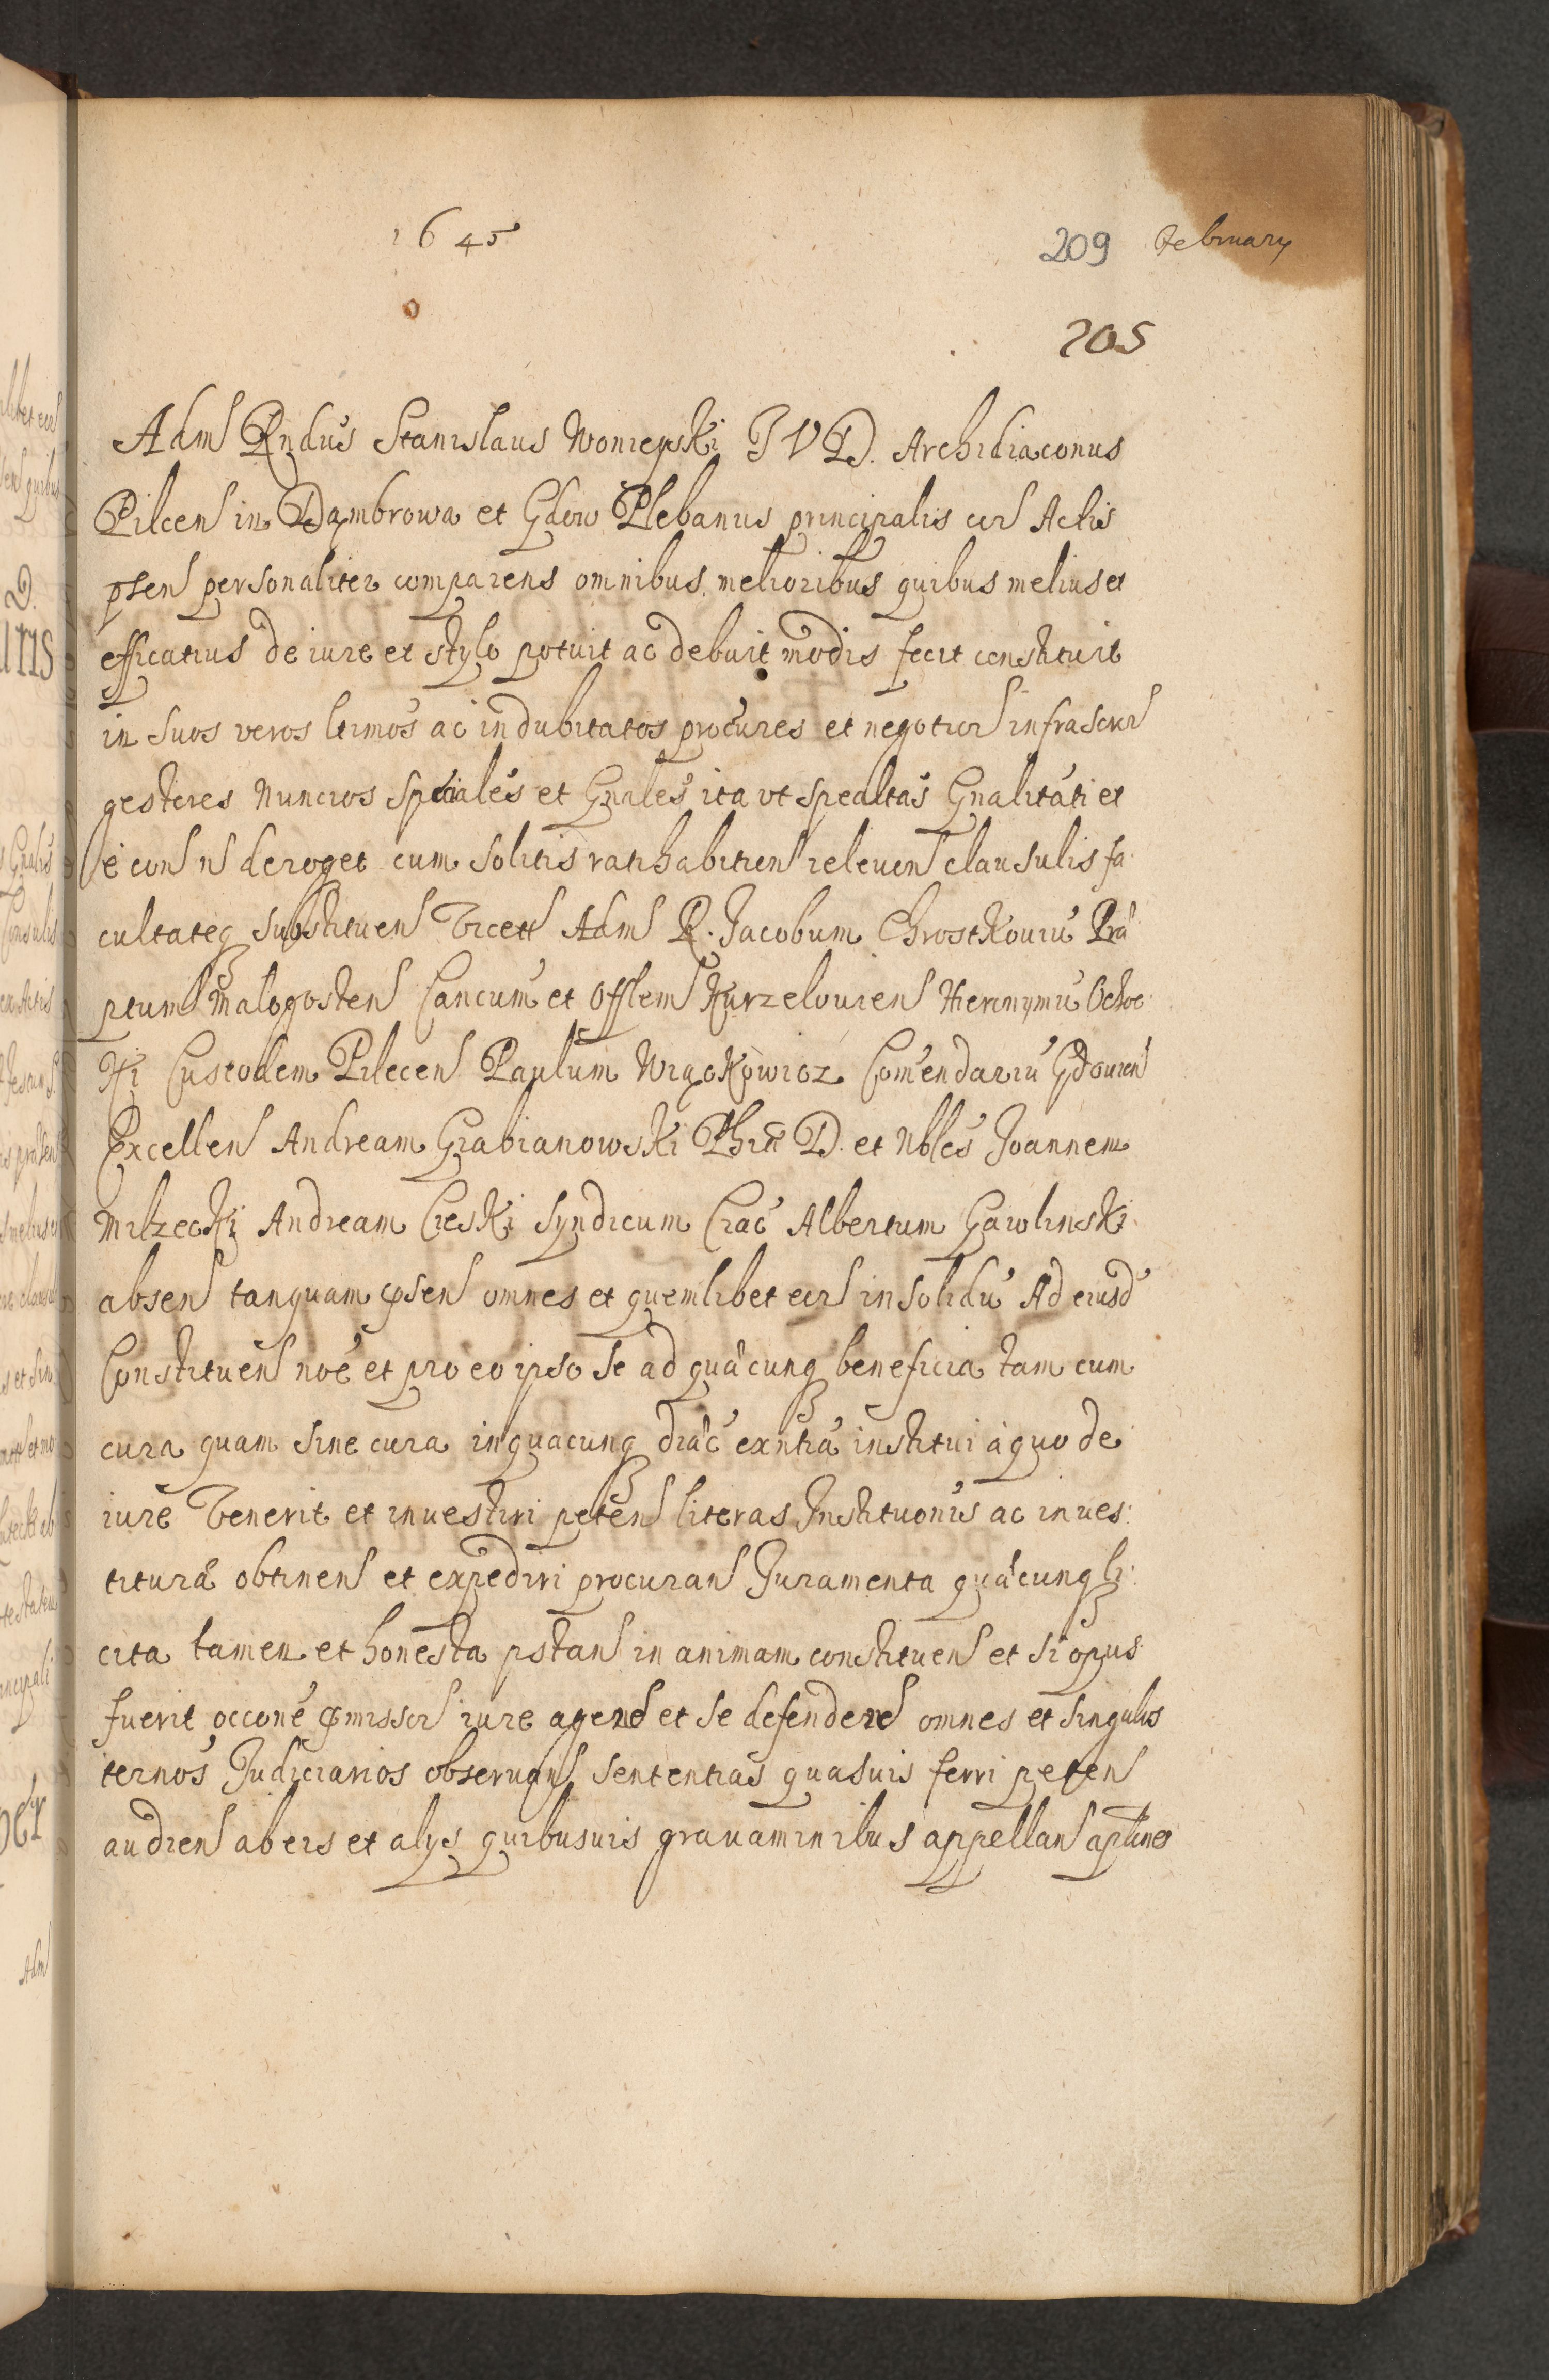 1645
209 February
205
Adm Rndus Stanislaus Woniepski J V D. Archidiaconus
Pilcen in Dąmbrowa et Gdow Plebanus principalis cor Actis
pñsen personaliter comparens omnibus melioribus quibus melius et
efficatius de iure et stylo potuit ac debuit modis fecit constituit
in suos veros ltimos ac indubitatos procures et negotior infrascr
gestores Nuncios spciales et Gnales ita ut spcaltas Gnalitati et
è con n deroget cum solitis ratihabition releuen clausulis fa
cultateq substituen Vicett Adm R. Jacobum Chrostkouiu Præ
ptum Malogosten Cancum et Offlem Kurzelouien Hieronymu Ochoc
ki Custodem Pilecen Paulum Wiąckowicz Comendariu Gdouien
Excellen Andream Grabianowski Phiæ D. et Nbles Joannem
Milzecki Andream Cieski Syndicum Crac Albertum Gawlinski
absen tanquam pñsen omnes et quemlibet eor in solidu Ad eiusd
Constituen noe et pro eo ipso se ad quæcunq beneficia tam cum
cura quam sine cura in quacunq diæc exntia institui à quo de
iure Venerit et inuestiri peten literas Institutionis ac inues
tituræ obtinen et expediri procuran Juramenta quæcunq li
cita tamen et honesta pstan in animam constituen et si opus
fuerit occone pmissor iure agend et se defendend omnes et singulos
ternos Judiciarios obseruan sententias quasuis ferri peten
audien ab eis et alys quibusuis grauaminibus appellan aplnes